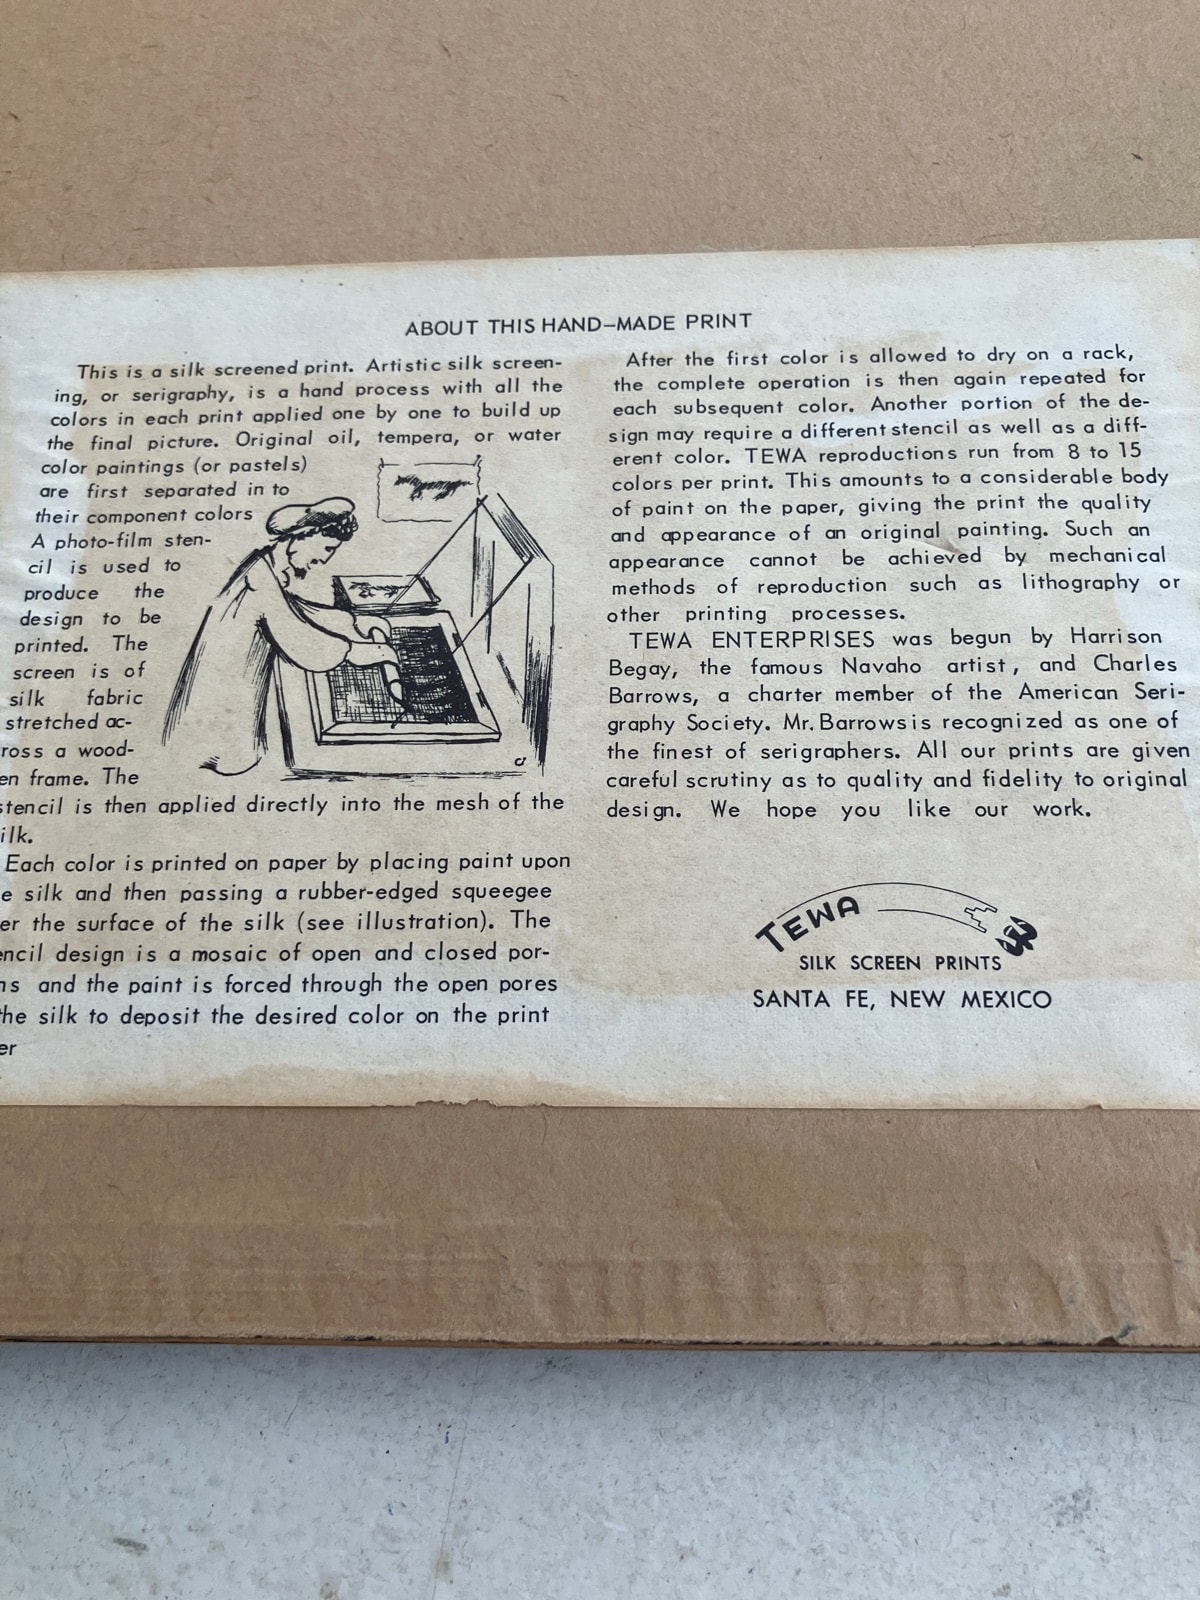 ABOUT THIS HAND-MADE PRINT
This is a silk screened print. Artistic silk screen-
ing, or serigraphy, is a hand process with all the
colors in each print applied one by one to build up
the final picture. Original oil, tempera, or water
color paintings (or pastels)
are first separated in to
their component colors
A photo-film sten-
cil is used to
produce the
design to be
printed. The
screen is of
silk fabric
stretched ac-
ross a wood-
en frame. The
stencil is then applied directly into the mesh of the
ilk.
Each color is printed on paper by placing paint upon
e silk and then passing a rubber-edged squeegee
er the surface of the silk (see illustration). The
encil design is a mosaic of open and closed por-
ns and the paint is forced through the open pores
the silk to deposit the desired color on the print
er
After the first color is allowed to dry on a rack,
the complete operation is then again repeated for
each subsequent color. Another portion of the de-
sign may require a different stencil as well as a diff-
erent color. TEWA reproductions run from 8 to 15
colors per print. This amounts to a considerable body
of paint on the paper, giving the print the quality
and appearance of an original painting. Such an
appearance cannot be achieved by mechanical
methods of reproduction such as lithography or
other printing processes.
TEWA ENTERPRISES was begun by Harrison
Begay, the famous Navaho artist, and Charles
Barrows, a charter member of the American Seri-
graphy Society. Mr. Barrows is recognized as one of
the finest of serigraphers. All our prints are given
careful scrutiny as to quality and fidelity to original
design. We hope you like our work.
TEWA
SILK SCREEN PRINTS
SANTA FE, NEW MEXICO